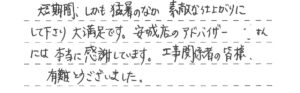 短期間、しかも猛暑のなか 素敵な仕上がりに
して下さり 大満足です。安城店のアドバイザー さん
には 本当に感謝しています。工事関係者の皆様、
有難うございました。